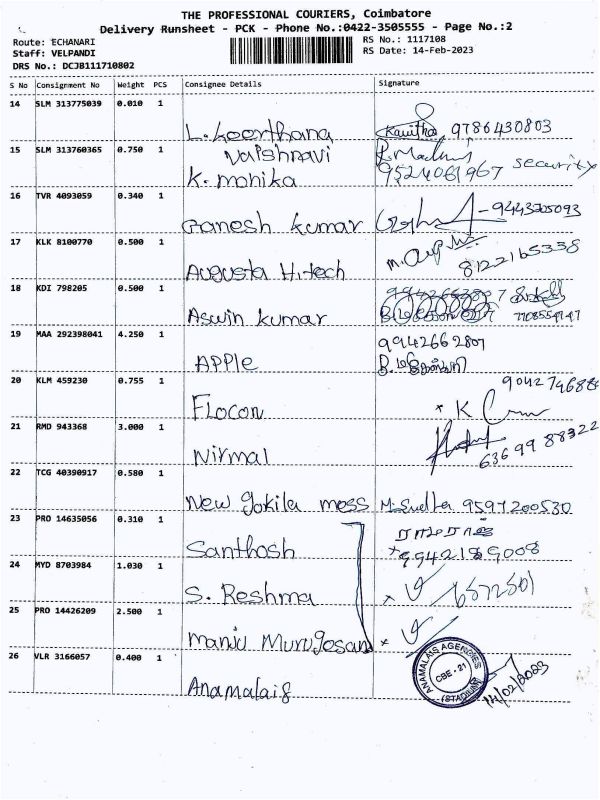 THE PROFESSIONAL COURIERS, Coimbatore
Delivery Runsheet - PCK - Phone No.:0422-3505555 - Page No.:2
Route: ECHANARI RS No.: 1117108
Staff: VELPANDI RS Date: 14-Feb-2023
DRS No.: DCJB111710802
S No Consignment No Weight PCS Consignee Details Signature
14 SLM 313775039 0.010 1
L. Keerthana Kavitha, 9786430803
15 SLM 313760365 0.750 1 Vaishnavi
K. monika 9524061967 security
16 TVR 4093059 0.340 1
Ganesh kumar -9443705093
17 KLK 8100770 0.500 1
Augusta Hitech 8122165338
18 KDI 798205 0.500 1
Aswin kumar
19 MAA 292398041 4.250 1 9942662807
APPle
20 KLM 459230 0.755 1
Flocon x K
21 RMD 943368 3.000 1
Nirmal 6369988322
22 TCG 40390917 0.580 1
New gokila mess M. Sudha 9597200530
23 PRO 14635056 0.310 1
Santhosh
24 MYD 8703984 1.030 1
S. Reshma x
25 PRO 14426209 2.500 1
manju Murugesan x
26 VLR 3166057 0.400 1 ANAMALAIS AGENCIES
CBE - 21
(STADIUM)
Anamalais 14/02/2023